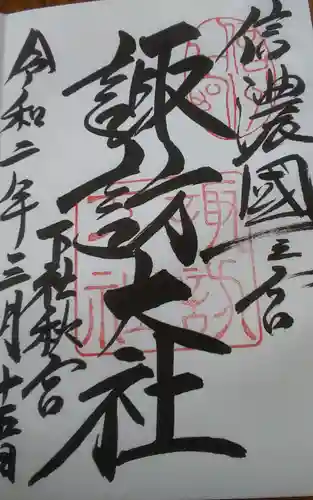 信濃國一之宮
諏訪大社
下社秋宮
令和二年三月十五日
諏訪
大社